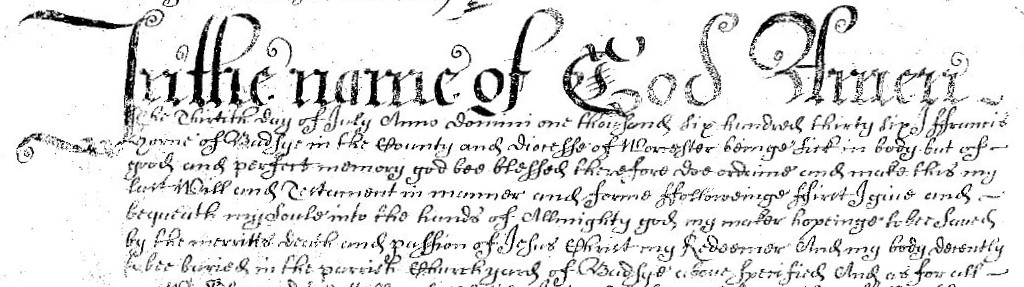 In the name of God Amen
the Thirtith day of July Anno domini one thousand six hundred thirty six I ffrancis
Horne of Badsye in the County and diocesse of Worcester beinge sick in body but of
good and perfect memory god bee blessed therefore doe ordaine and make this my
last Will and Testament in manner and forme ffollowinge ffirst I give and
bequeath my soule into the hands of Allmighty god my maker hopeinge to bee saved
by the merritts death and passion of Jesus Christ my Redeemer And my body decently
to bee buried in the parrish Churchyard of Badsye above specified And as for all